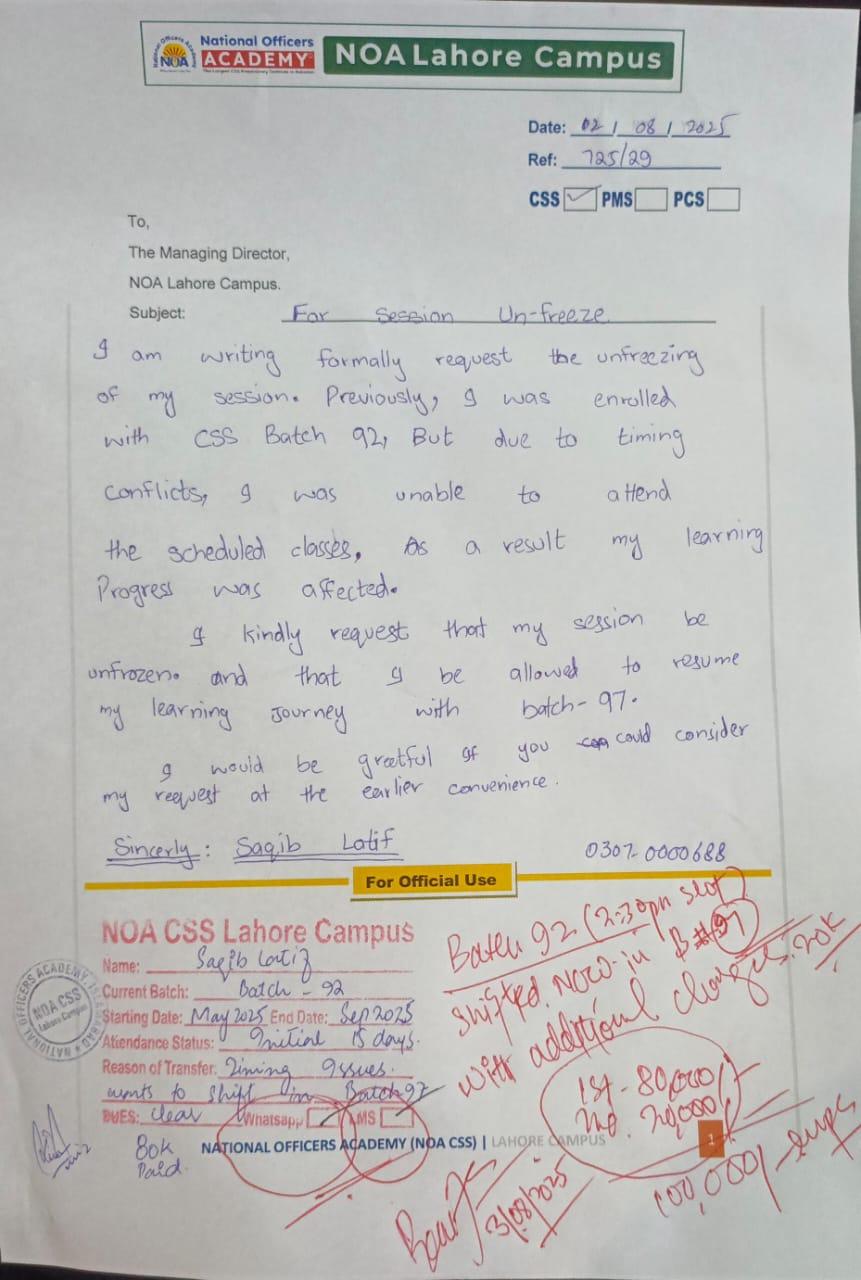 National Officers
ACADEMY
NOA
NOA Lahore Campus
Date: 02 / 08 / 2025
Ref: 725/29
CSS PMS PCS
To,
The Managing Director,
NOA Lahore Campus.
Subject: For Session Un-freeze
I am writing formally request the unfreezing
of my session. Previously, I was enrolled
with CSS Batch 92, But due to timing
conflicts, I was unable to attend
the scheduled classes, As a result my learning
Progress was affected.
I kindly request that my session be
unfrozen. and that I be allowed to resume
my learning Journey with batch-97.
I would be greetful if you could consider
my request at the earlier convenience.
Sincerly: Saqib Latif 0307-0000688
For Official Use
NOA CSS Lahore Campus
Name: Saqib Latif
Current Batch: Batch - 92
Starting Date: May 2025 End Date: Sep 2025
Attendance Status: Initial 15 days.
Reason of Transfer: Timing Issues.
wants to shift in Batch 97
DUES: Clear Whatsapp LMS
80k
Paid.
NOA CSS
Lahore Campus
Batch 92 (2:30pm slot)
shifted Now in B#97
with additional charges. 20k
1st - 80,000/-
2nd. 20,000/-
100,000/-
3/08/2025
NATIONAL OFFICERS ACADEMY (NOA CSS) | LAHORE CAMPUS
1